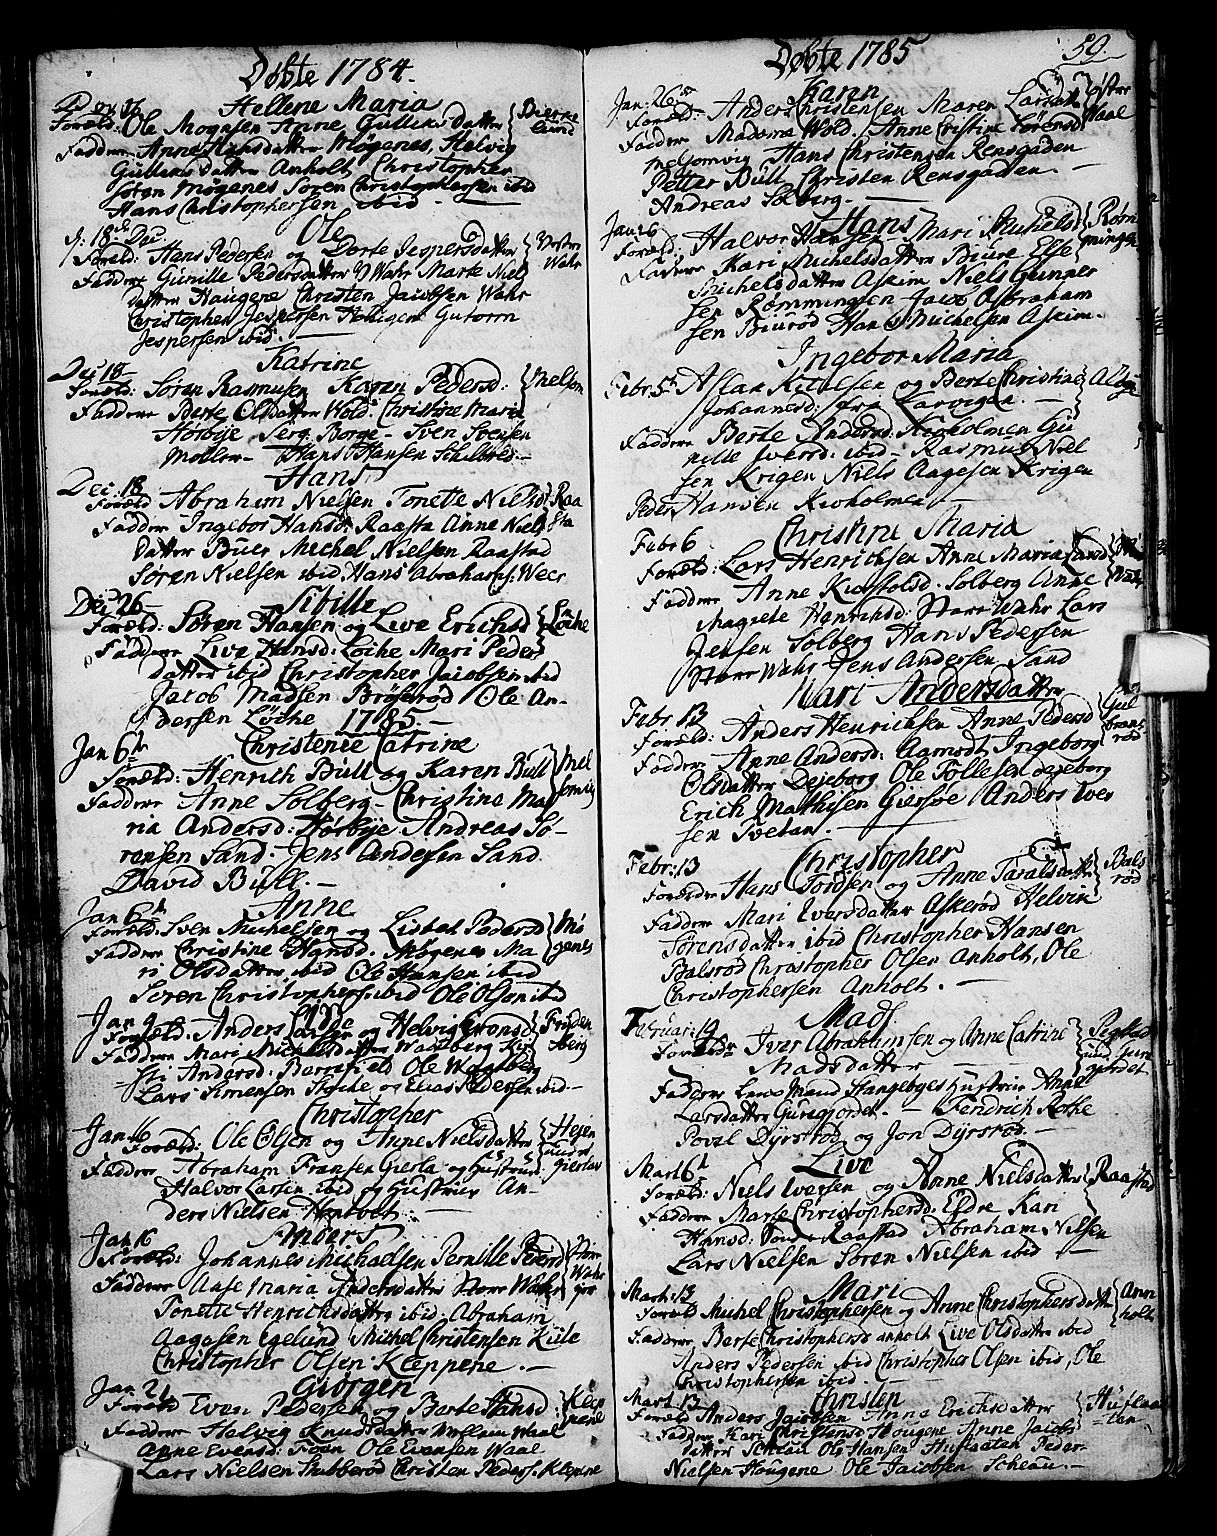 Døbte 1784.
Hellene Maria
Foræld: Ole Mogensen Anne Gulliksdatter
Faddere Anne Hansdatter Møgenes, Helvig
Gulliksdatter Anholt Christopher
Søren Møgenes Søren Christophersen ibid
Hans Christophersen ibid —
Ole
18 Dec
Foræld: Hans Pedersen og Dorte Jespersdatter Vester Wahr
Faddere Gunille Pedersdatter Wahr Marte Niels
datter Haugene Christen Jacobsen Wahr
Christopher Jespersen Guttorm
Jespersen ibid.
Katrine
Dec 18
Foræld: Søren Rasmusen Karen Pedersd: Melsom
Faddere Berte Olsdatter Wold. Christine Maria
Hørbye Borge – Sven Svensen
Møller – Hans Hansen
Hans
Dec: 18
Foræld Abraham Nielsen Tonette Nielsd Raa
Faddere Ingebor Hansd: Raasta Anne Niels sta
datter Buer Michel Nielsen Raastad
Søren Nielsen ibid Hans Abrahams: Weer
Sibille
Dec 26
Foræld: Søren Hansen og Live Erichsd Løche
Faddere Live Hansd: Løche Mari Peders
datter ibid Christopher Jacobsen ibid
Jacob Madsen Brøsrød Ole An-
dersen Løche 1785. —
Christence Catrine
Jan 6te
Foræld: Henrich Bull og Karen Bull Mel
Faddere Anne Solberg – Christine Ma somvig
ria Andersd: Hørbye Andreas Sø-
rensen Sand. Jens Andersen Sand.
David Bull. —
Anne
Jan 6te
Foræld: Sven Michelsen og Lisbet Pedersd Mø
Faddere Christine Hansd. Møgenes Ma genes
ri Olsdatter ibid Ole Hansen ibid
Søren Christophersen ibid Ole Olsen ibid
Jan 9
Foræld: Anders Larsen og Helvig
Faddere Mari Michelsdatter Waalberg
Andersd: Ole Waalberg
Lars Simensen og Pedersen ibid —
Christopher
Jan 16
Foræld: Ole Olsen og Anne Nielsdatter Hejen
Faddere Abraham Fransen Gierla og Hustrue under
Halvor Larsen ibid og Hustrue An-
ders Nielsen
Anders
Jan 16
Foræld: Johannes Michaelsen Pernille Pedersd
Faddere Anne Maria Andersdatter Store Wahr
Tonette Henrichsdatter ibid Abraham
Aagesen Egelund Michel Christensen Kiile
Christopher Olsen Kleppene. —
Giorgen
Jan. 21
Foræld Even Pedersen og Barte Hansd: Klep
Faddere Helvig Knudsdatter Mellum Waal pene
Anne Evensd: Foen Ole Evensen Waal
Lars Nielsen Stubberød Christen Peders: Klepene
Døbte 1785
59.
Karen
Jan: 26
Foræld: Anders Christensen Maren Larsdatt øster
Faddere Madame Wold. Anne Cristine Sørensd Waal
Melsomvig Hans Christensen Rensgaden
Petter Bull Christen Rensgaden —
Andreas Solberg. —
Hans
Jan 26
Foræld: Halvor Hansen – Mari Michelsd Røm
Faddere Kari Michelsdatter Biure Else mingen
Michelsdatter Askim Niels Gunner
sen Rømmingen Jacob Abraham
sen Biurød Hans Michelsen Askim.
Ingebor Maria
Febr: 5te Aslak Kittelsen og Berte Christine
Johannesd: fra Larvigen. —
Faddere Berte Andersd: Kioholmen Gu
nille Iversd: ibid – Rasmus Niel
sen Krigen Niels Aagesen Krigen
Peder Hansen Kioholmen —
Christine Maria
Febr 6.
Foræld: Lars Henrichsen Anne Maria Larsd
Faddere Anne Kiostolsd: Solberg Anne
Magrete Henriksd: Store Wahr Lars
Jensen Solberg Hans Pedersen
Store Wahr Jens Andersen Sand
Mari Andersdatter
Febr 13
Foræld: Anders Henrichsen Anne Pedersd Gul
Faddere Anne Andersd: Aamodt Ingeborg brants
Olsdatter Dejeborg Ole Tollefsen Dejeborg rød
Erich Mathisen Giersøe Anders Iver
sen Tvetan. —
Christopher
Febr: 13
Forældre Hans Tordsen og Anne Taraldsdatter Bals
Faddere Mari Iversdatter Askerød Helvig rød
Sørensdatter ibid Christopher Hansen
Balsrød Christopher Olsen Anholt, Ole
Christophersen Anholt. —
Mads
Februar: 19
Forældre Iver Abrahamsen og Anne Catrine
Madsdatter —
Faddere Lars Hangebyes hustrue Anne
Larsdatter Guregjordet. — Fendrich Rothe
Povel Dyrsrød og Jon Dyrsrød. —
Live
Mart 6te
Foræld: Niels Iversen og Anne Nielsdatter Raastad
Faddere Marte Christophersd: Eidre Kari
Hansd: Raastad Abraham Nilsen
Lars Nielsen Søren Nielsen ibid —
Mari
Mart: 13
Foræld Michel Christophersen og Anne Christophersdatt Ann
Faddere Barte Christophersd anholt Live Olsdatter ibid holt
Anders Pedersen ibid Christopher Olsen ibid, Ole
Christophersen ibid. —
Christen
Mart. 13
Foræld Anders Jacobsen Anna Erichsdatter
Faddere Kari Christensd Hougene Anne Jacobs
datter Scheau Ole Hansen Huslaaten Peder
Nielsen Hougene Ole Jacobsen Scheau. —